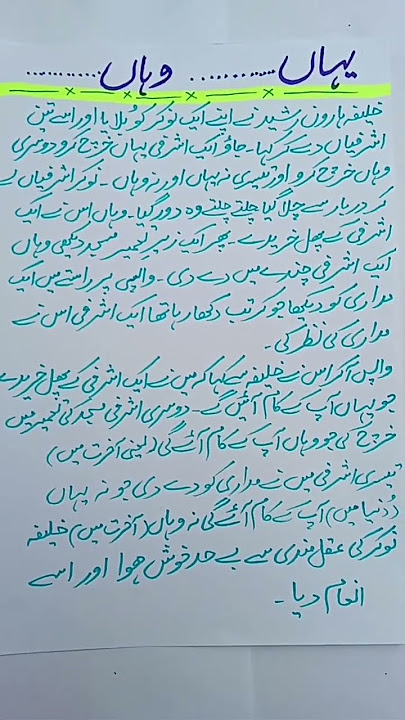 یہاں ........... وہاں ...........
خلیفہ ہارون رشید نے اپنے ایک نوکر کو بلایا اور اسے تین
اشرفیاں دے کر کہا۔ جاؤ ایک اشرفی یہاں خرچ کرو دوسری
وہاں خرچ کرو اور تیسری نہ یہاں اور نہ وہاں ۔ نوکر اشرفیاں لے
کر دربار سے چلا گیا چلتے چلتے وہ دور گیا۔ وہاں اس نے ایک
اشرفی کے پھل خریدے ۔ پھر ایک زیرِ تعمیر مسجد دیکھی وہاں
ایک اشرفی چندے میں دے دی ۔ واپسی پر راستے میں ایک
مداری کو دیکھا جو کرتب دکھا رہا تھا ایک اشرفی اس نے
مداری کی نظر کی ۔
واپس آکر اس نے خلیفہ سے کہا کہ میں نے ایک اشرفی کے پھل خریدے
جو یہاں آپ کے کام آئیں گے ۔ دوسری اشرفی مسجد کی تعمیر میں
خرچ کی جو وہاں آپ کے کام آئے گی (یعنی آخرت میں)
تیسری اشرفی میں نے مداری کو دے دی جو نہ یہاں
(دُنیا میں) آپ کے کام آئے گی نہ وہاں (آخرت میں) خلیفہ
نوکر کی عقل مندی سے بے حد خوش ہوا اور اسے
انعام دیا ۔